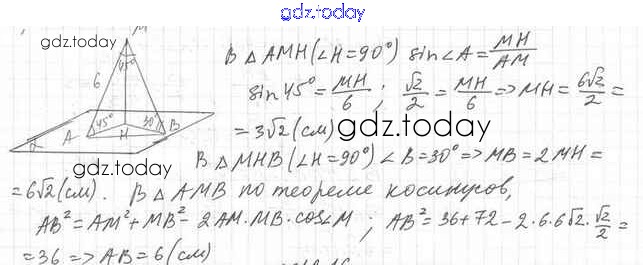 gdz.today
M
gdz.today
45°
6
A 45° H 30° B
α
В △ AMH (∠H=90°) sin∠A = MH/AM
sin 45° = MH/6 ; √2/2 = MH/6 => MH = 6√2/2 =
= 3√2 (см) gdz.today
В △ MHB (∠H=90°) ∠B=30° => MB = 2MH =
= 6√2 (см). В △ AMB по теореме косинусов,
AB² = AM² + MB² - 2AM·MB·cos∠M ; AB² = 36+72-2·6·6√2·√2/2 =
= 36 => AB = 6 (см)